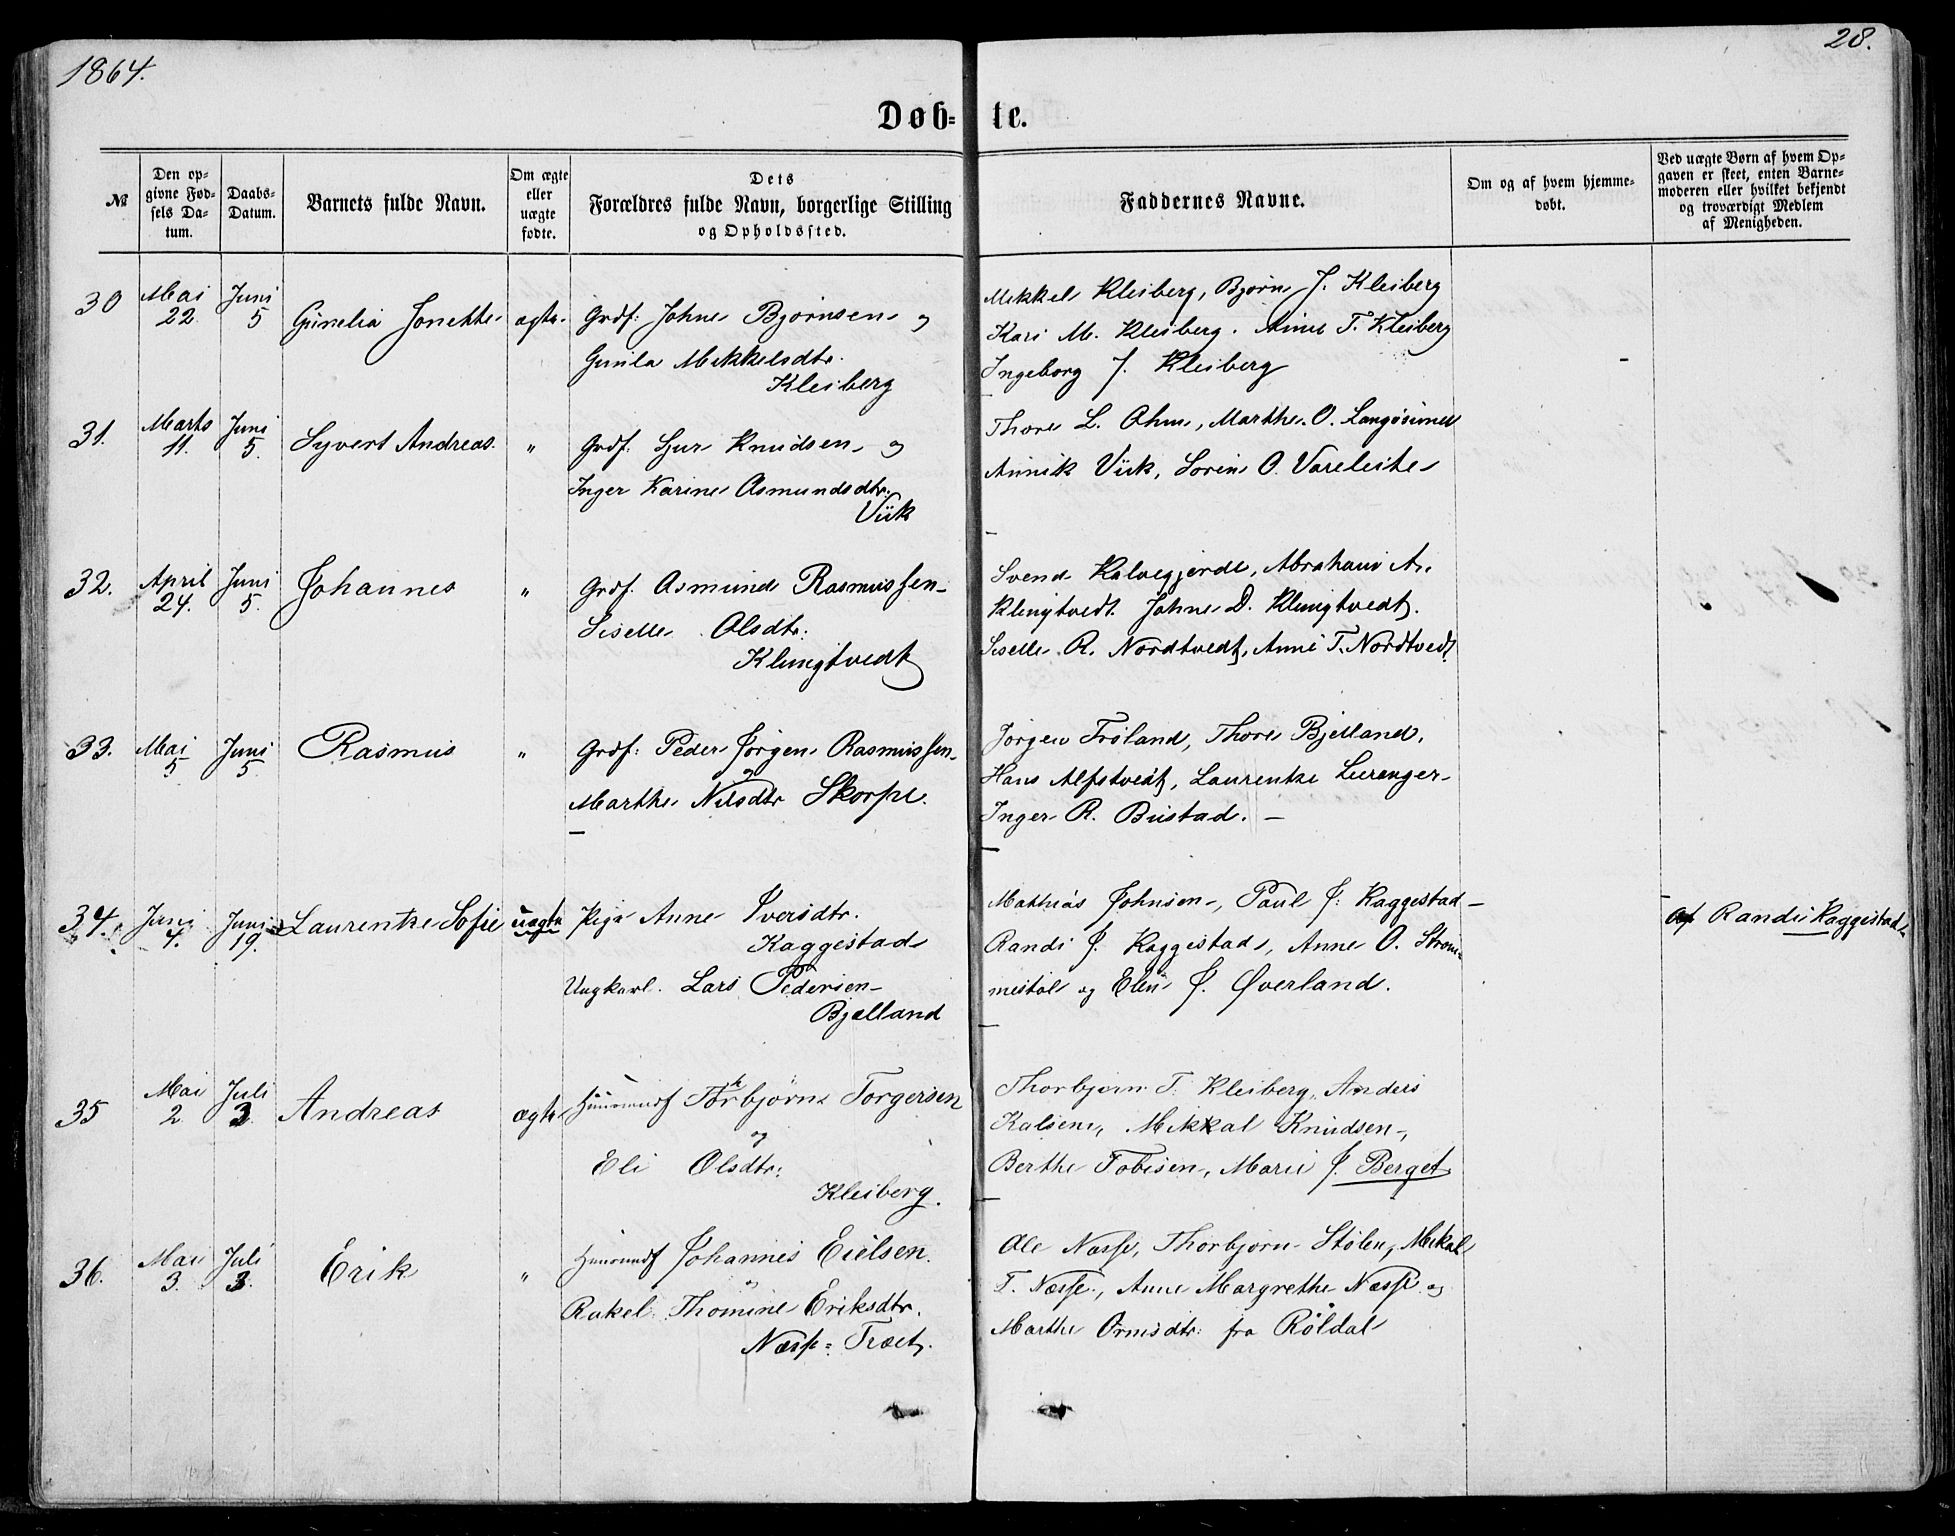 1864.
28.
Døb= te.
№
Den op-
givne Fød-
sels Da-
tum.
Daabs-
Datum.
Barnets fulde Navn.
Om ægte
eller
uægte
fødte.
Dets
Forældres fulde Navn, borgerlige Stilling
og Opholdssted.
Faddernes Navne.
Om og af hvem hjemme-
døbt.
Ved uægte Børn af hvem Op-
gaven er skeet, enten Barne-
moderen eller hvilket bekjendt
og troværdigt Medlem
af Menigheden.
30 Mai 22. Juni 5 Gunelia Jonette ægte. Grdf: Johne Bjørnsen og
Gunla Mikkelsdtr.
Kleiberg
Mikkel Kleiberg, Bjørn J. Kleiberg
Kari M. Kleiberg. Anne T. Kleiberg
Ingeborg J. Kleiberg
31. Marts 11. Juni 5. Syvert Andreas. " Grdf. Sjur Knudsen og
Inger Karine Asmundsdtr.
Viik
Thore L. Ohm, Marthe O.
Annik Viik, Sorine O. Vareleite
32. April 24. Juni 5. Johannes " Grdf. Asmund Rasmussen
Siselle Olsdtr:
Klungtvedt
Svend Kalvegjerde, Abraham A.
Klungtvedt. Johne D. Klungtvedt.
Siselle R. Nordtvedt, Anne T. Nordtvedt
33. Mai 5 Juni 5. Rasmus " Grdf: Peder Jørgen Rasmussen
og
Marthe Nilsdtr Skorpe.
Jørgen Frøland, Thore Bjelland,
Hans Alfstvedt, Laurentze Lurenger
Inger R. Bustad. —
34. Juni 4. Juni 19. Laurentze Sofie uægte Pige Anne Iversdtr.
Kaggestad
Ungkarl. Lars Pedersen
Bjælland
Mathias Johnsen, Paul J. Kaggestad
Randi J. Kaggestad, Anne O. Strøm-
mestøl og Elen J. Øverland.
Af Randi Kaggestad
35 Mai 2 Juli 3. Andreas ægte Huusmd Torbjørn Torgersen
og
Eli Olsdtr:
Kleiberg.
Thorbjørn T. Kleiberg, Anders
Kalsene, Mikkal Knudsen,
Berthe Tobisen, Marie J. Berget
36. Mai 3. Juli 3. Erik " Huusmd Johannes Eielsen.
og
Rakel Thomine Eriksdtr.
Næsse-Træet.
Ole Næsse, Thorbjørn Stølen, Mikal
T. Næsse, Anne Margrethe Næsse og
Marthe Ormsdtr: fra Røldal